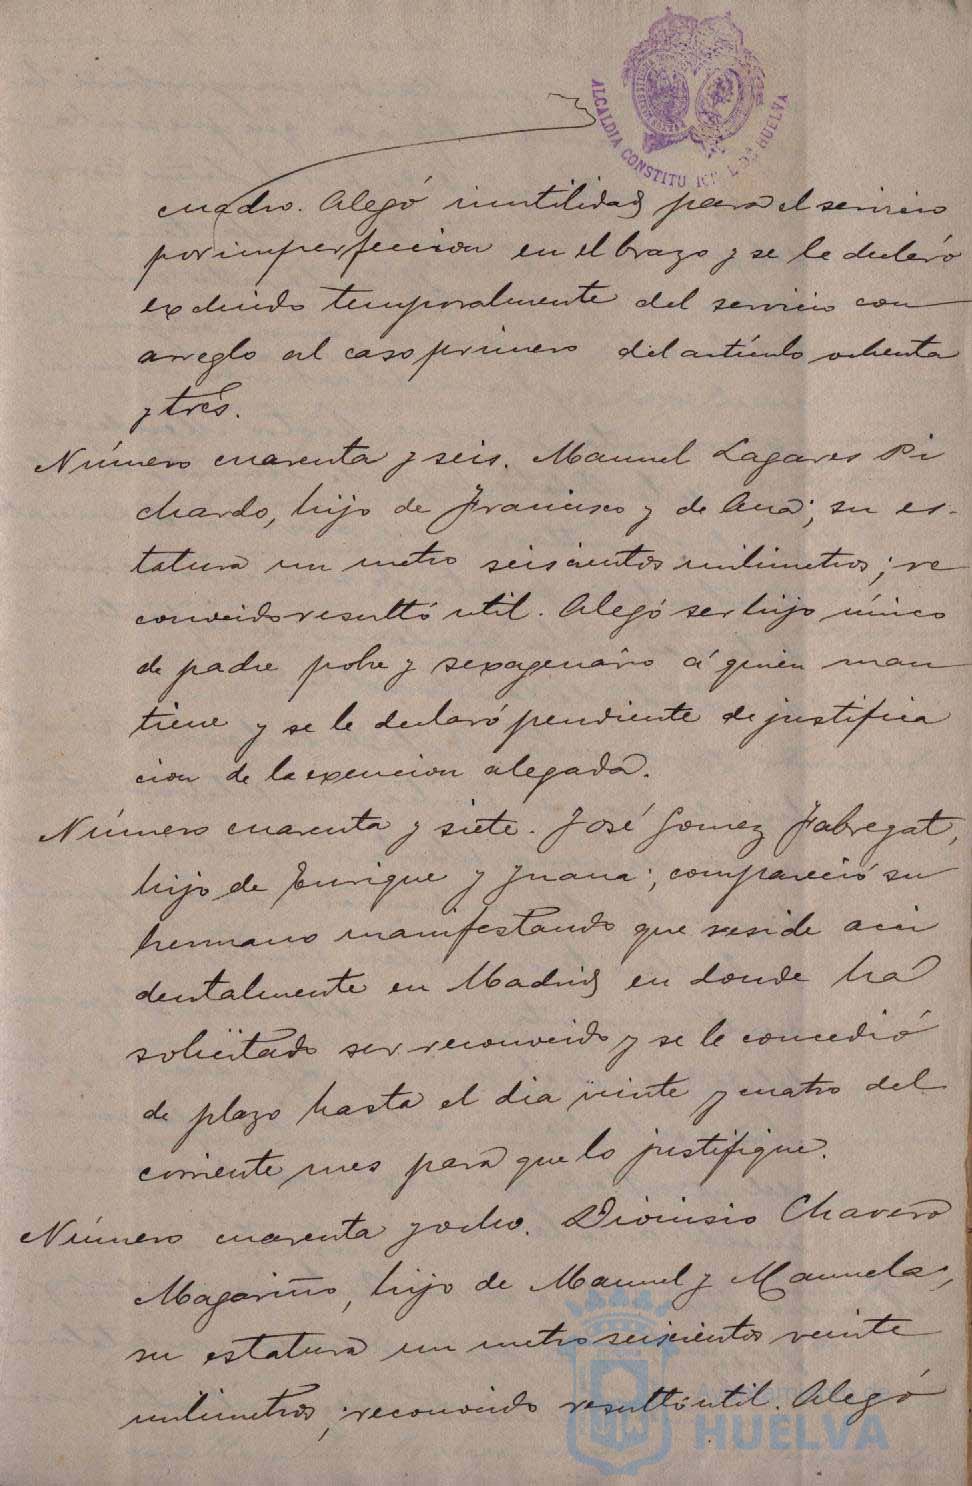 ALCALDIA CONSTITUCIONAL DE HUELVA
cuadro. Alegó inutilidad para el servicio
por imperfeccion en el brazo y se le declaró
excluido temporalmente del servicio con
arreglo al caso primero del artículo ochenta
y tres.
Número cuarenta y seis. Manuel Lagares Pi
chardo, hijo de Francisco y de Ana; su es-
tatura un metro seiscientos milimetros; re
conocido resultó util. Alegó ser hijo único
de padre pobre y sexagenario á quien man
tiene y se le declaró pendiente de justifica
cion de la exencion alegada.
Número cuarenta y siete. José Gomez Fabregat,
hijo de Enrique y Juana; compareció su
hermano manifestando que reside acci
dentalmente en Madrid en donde ha
solicitado ser reconocido y se le concedió
de plazo hasta el dia veinte y cuatro del
corriente mes para que lo justifique.
Número cuarenta y ocho. Dionisio Chavero
Magariño, hijo de Manuel y Manuela,
su estatura un metro seiscientos veinte
milimetros; reconocido resultó util. Alegó
Ayuntamiento de
HUELVA